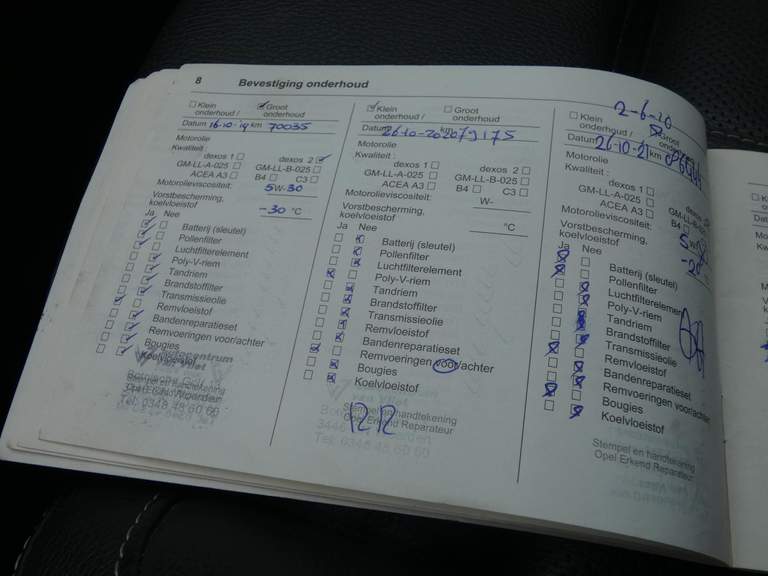 8 Bevestiging onderhoud
Klein onderhoud / Groot onderhoud
Datum 16-10-19 km 70035
Motorolie
Kwaliteit :
dexos 1 dexos 2
GM-LL-A-025 GM-LL-B-025
ACEA A3 B4 C3
Motorolieviscositeit: 5W-30
Vorstbescherming,
koelvloeistof -30 °C
Ja Nee
Batterij (sleutel)
Pollenfilter
Luchtfilterelement
Poly-V-riem
Tandriem
Brandstoffilter
Transmissieolie
Remvloeistof
Bandenreparatieset
Remvoeringen voor/achter
Bougies
Koelvloeistof
Stempel en handtekening
Tel: 0348 48 60 60
Klein onderhoud / Groot onderhoud
Datum 26-10-2020 km 79175
Motorolie
Kwaliteit :
dexos 1 dexos 2
GM-LL-A-025 GM-LL-B-025
ACEA A3 B4 C3
Motorolieviscositeit: W-
Vorstbescherming,
koelvloeistof °C
Ja Nee
Batterij (sleutel)
Pollenfilter
Luchtfilterelement
Poly-V-riem
Tandriem
Brandstoffilter
Transmissieolie
Remvloeistof
Bandenreparatieset
Remvoeringen voor/achter
Bougies
Koelvloeistof
Stempel en handtekening
Opel Erkend Reparateur
3446
Tel: 0348 48 60 60
2-6-20
Klein onderhoud / Groot
Datum 26-10-21 km
Motorolie
Kwaliteit :
dexos 1
GM-LL-A-025
ACEA A3 B4
Motorolieviscositeit: 5W
Vorstbescherming,
koelvloeistof
Ja Nee
Batterij (sleutel)
Pollenfilter
Luchtfilterelement
Poly-V-riem
Tandriem
Brandstoffilter
Transmissieolie
Remvloeistof
Bandenreparatieset
Remvoeringen voor/achter
Bougies
Koelvloeistof
Stempel en handtekening
Opel Erkend Reparateur